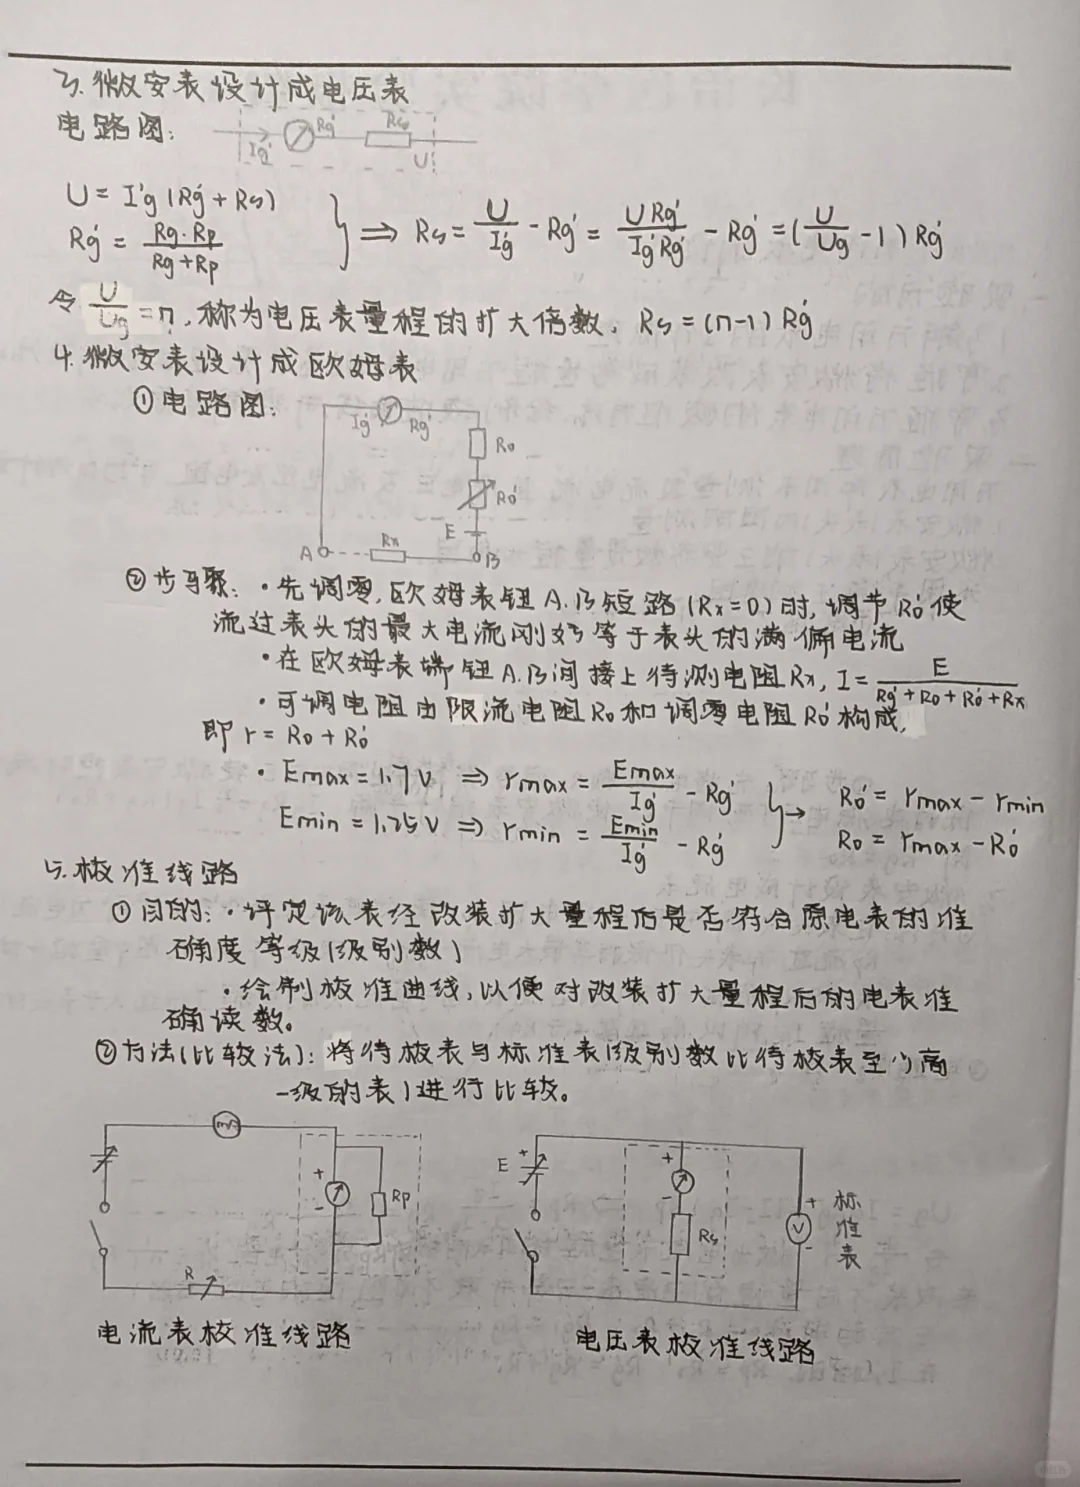 3. 微安表设计成电压表
电路图:
Ig' Rg' Rs U
U = I'g (Rg' + Rs)
Rg' = Rg·Rp / (Rg+Rp)
} ⇒ Rs = U/Ig' - Rg' = URg'/Ig'Rg' - Rg' = (U/Ug - 1) Rg'
令 U/Ug = n, 称为电压表量程的扩大倍数, Rs = (n-1) Rg'
4. 微安表设计成欧姆表
①电路图:
Ig' Rg'
R0
R0'
E
A Rx B
②步骤: ·先调零, 欧姆表钮A.B短路(Rx=0)时, 调节R0'使
流过表头的最大电流刚好等于表头的满偏电流
·在欧姆表端钮A.B间接上待测电阻Rx, I = E / (Rg'+R0+R0'+Rx)
·可调电阻由限流电阻R0和调零电阻R0'构成,
即 r = R0 + R0'
· Emax = 1.7V ⇒ rmax = Emax/Ig' - Rg'
Emin = 1.25V ⇒ rmin = Emin/Ig' - Rg'
} → R0' = rmax - rmin
R0 = rmax - R0'
5. 校准线路
①目的: ·评定该表经改装扩大量程后是否符合原电表的准
确度等级(级别数)
·绘制校准曲线, 以便对改装扩大量程后的电表准
确读数。
②方法(比较法): 将待校表与标准表(级别数比待校表至少高
一级的表)进行比较。
mA + - Rp R
E + + - Rs V + - 标准表
电流表校准线路
电压表校准线路